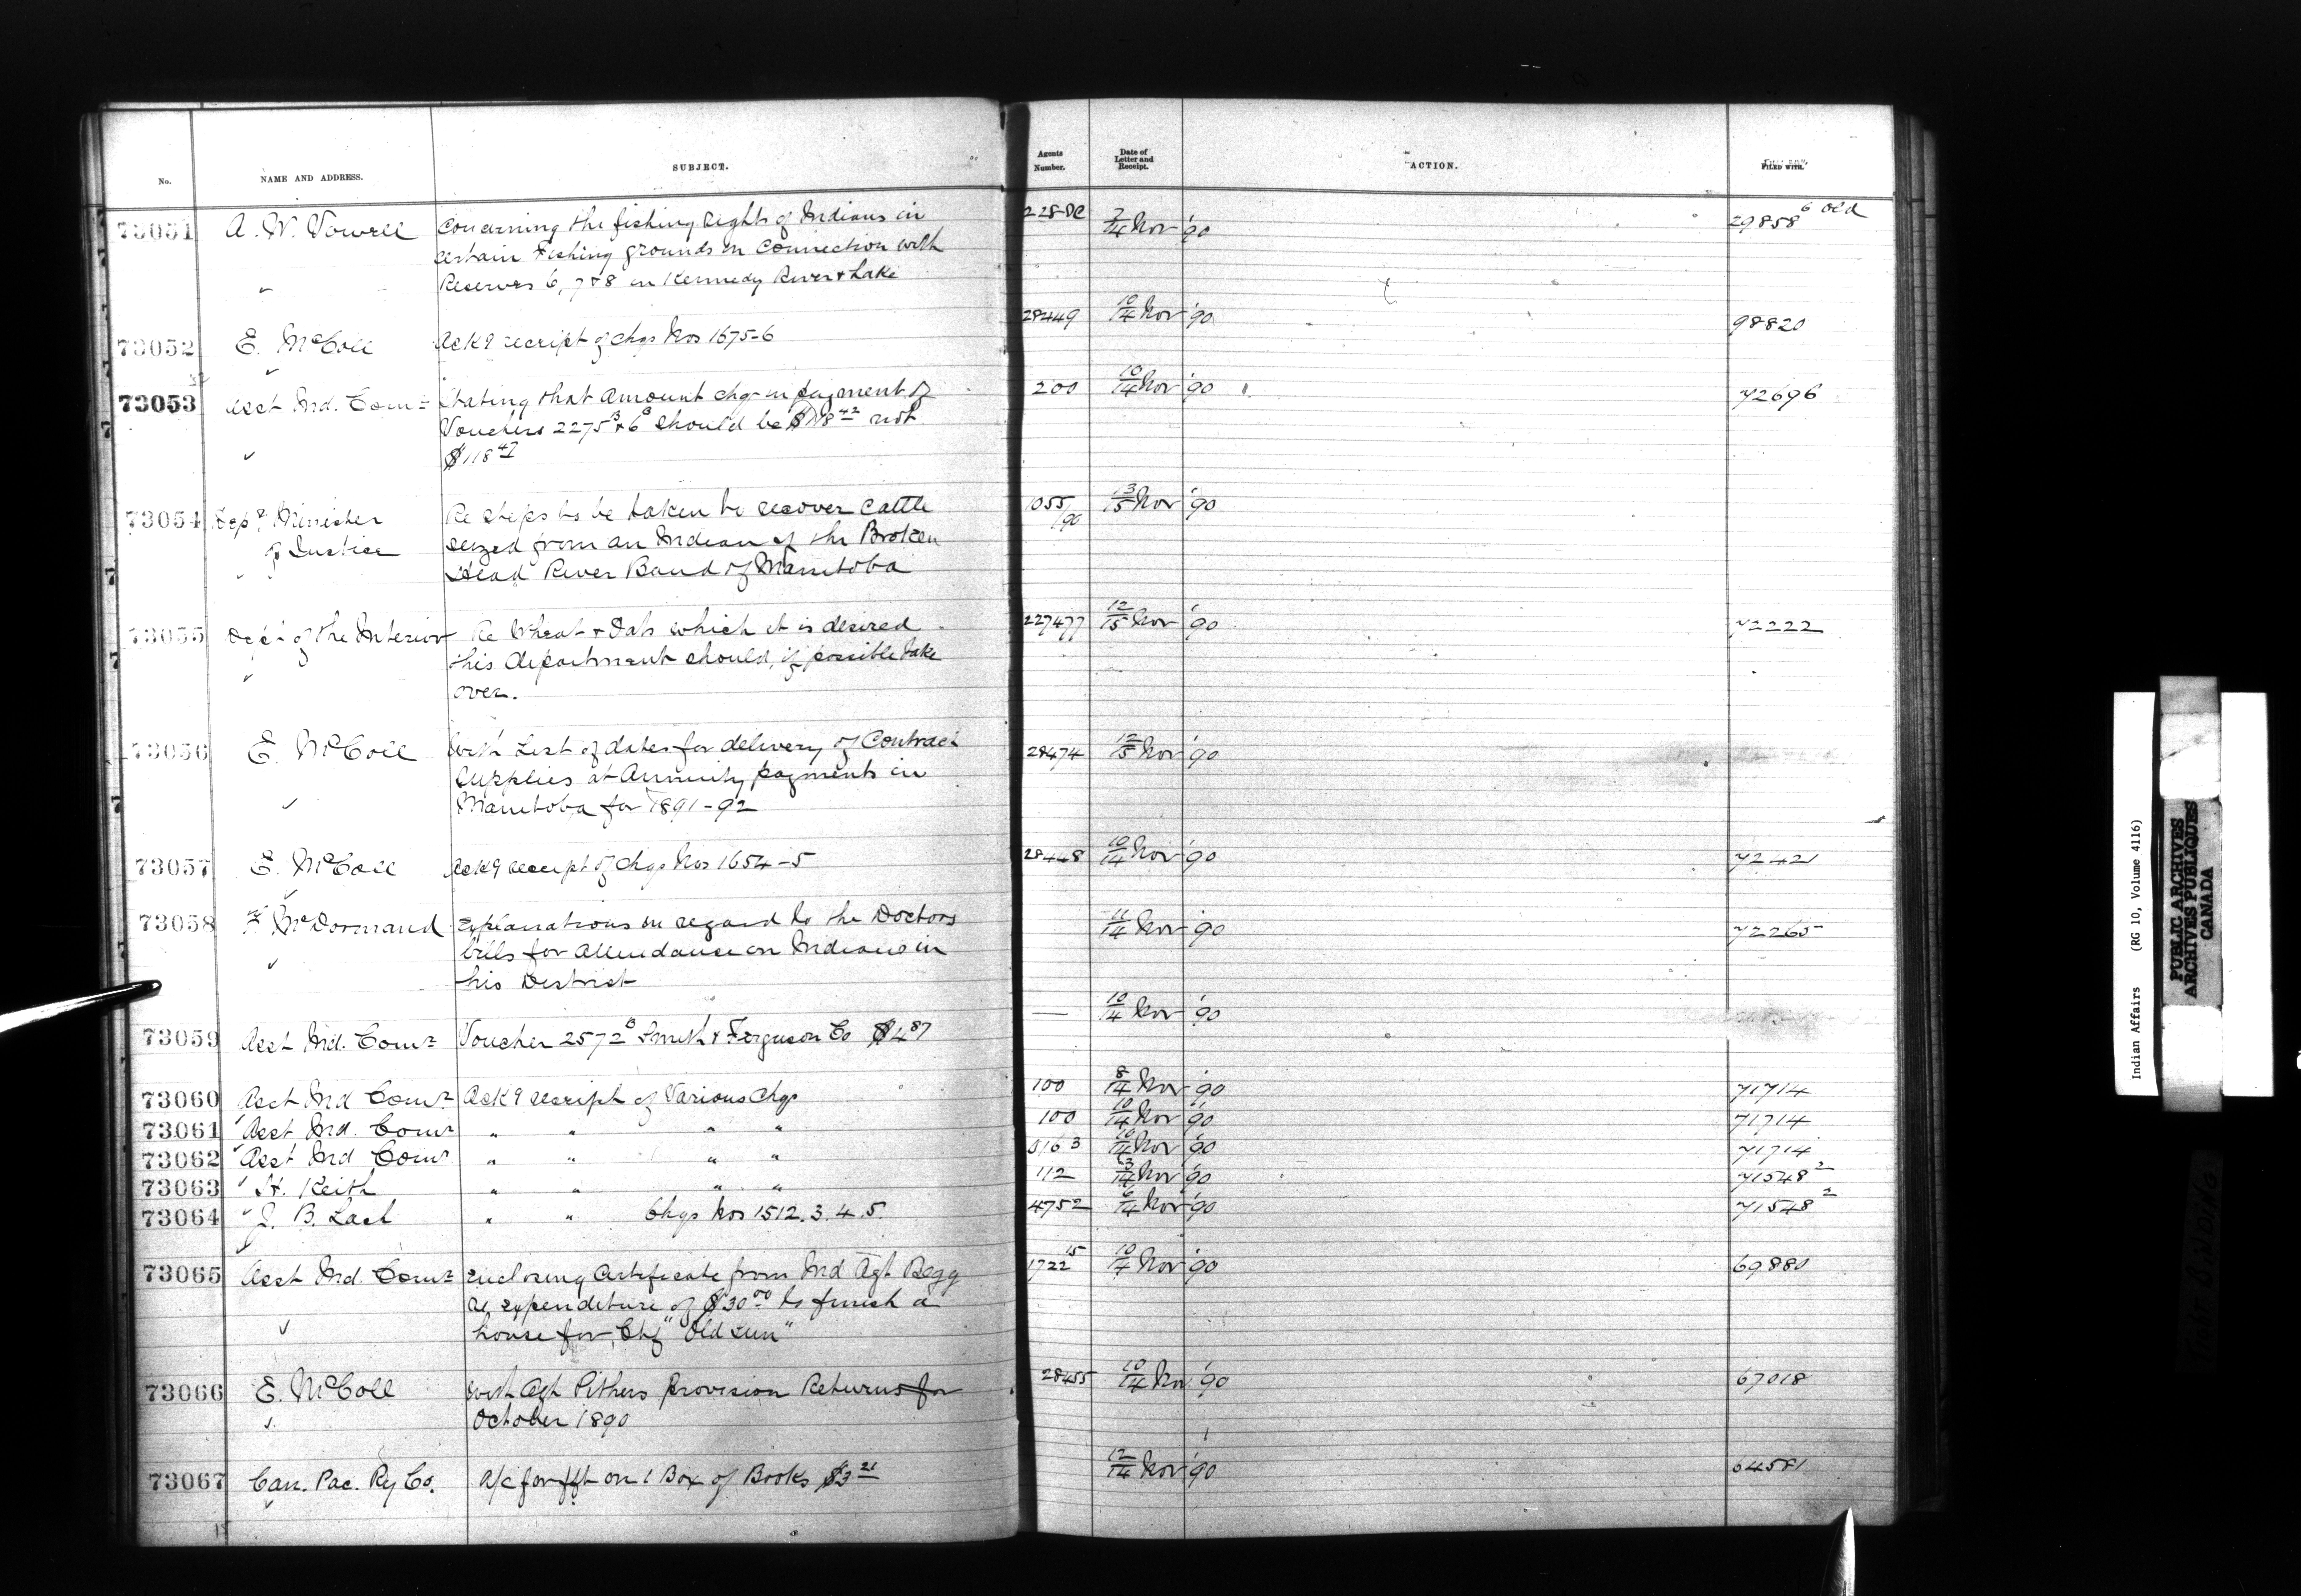 No. NAME AND ADDRESS. SUBJECT. Agents Number. Date of Letter and Receipt. ACTION. FILED WITH.
73051 A. W. Vowell Concerning the fishing rights of Indians in 228 7/14 Nov '90 29858 6 old
certain Fishing grounds in connection with
Reserves 6, 7 & 8 on Kennedy River & Lake
73052 E. McColl Ackg receipt of chqs Nos 1675-6 28449 10/14 Nov '90 98820
73053 Asst Ind. Comr Stating that amount chq in payment of 200 10/14 Nov '90 72696
Vouchers 2275B & 6B should be $118 42 not
$118 47
73054 Depy Minister Re steps to be taken to recover cattle 1055/90 13/15 Nov '90
of Justice seized from an Indian of the Broken
Head River Band of Manitoba
73055 Dept of the Interior Re Wheat & Oats which it is desired 227477 12/15 Nov '90 72222
this department should, if possible take
over.
73056 E. McColl With List of dates for delivery of Contract 28474 12/15 Nov '90
Supplies at Annuity payments in
Manitoba for 1891-92
73057 E. McColl Ackg receipt of chqs Nos 1654-5 28448 10/14 Nov '90 72421
73058 McDormand Explanations in regard to the Doctors 11/14 Nov '90 72265
bills for Attendance on Indians in
his District
73059 Asst Ind. Comr Voucher 2572B Smith & Ferguson Co $4 87 — 10/14 Nov '90
73060 Asst Ind Comr Ackg receipt of Various chqs 100 8/14 Nov '90 71714
73061 Asst Ind. Comr " " " " 100 10/14 Nov '90 71714
73062 Asst Ind Comr " " " " 10/14 Nov '90 71714
73063 H. Keith " " " " 112 3/14 Nov '90 71548 2
73064 J. B. Lash " " Chqs Nos 1512. 3. 4. 5. 4752 6/14 Nov '90 71548 2
73065 Asst Ind. Comr Enclosing Certificate from Ind Agt Begg 1722 15 10/14 Nov '90 69880
re expenditure of $30 00 to finish a
house for Chf "Old Sun"
73066 E. McColl With Agt Pithers Provision Returns for 28455 10/14 Nov '90 67018
October 1890
73067 Can. Pac. Ry Co. A/c for frt on 1 Box of Books $3 21 12/14 Nov '90 64581
Indian Affairs (RG 10, Volume 4116)
PUBLIC ARCHIVES
ARCHIVES PUBLIQUES
CANADA